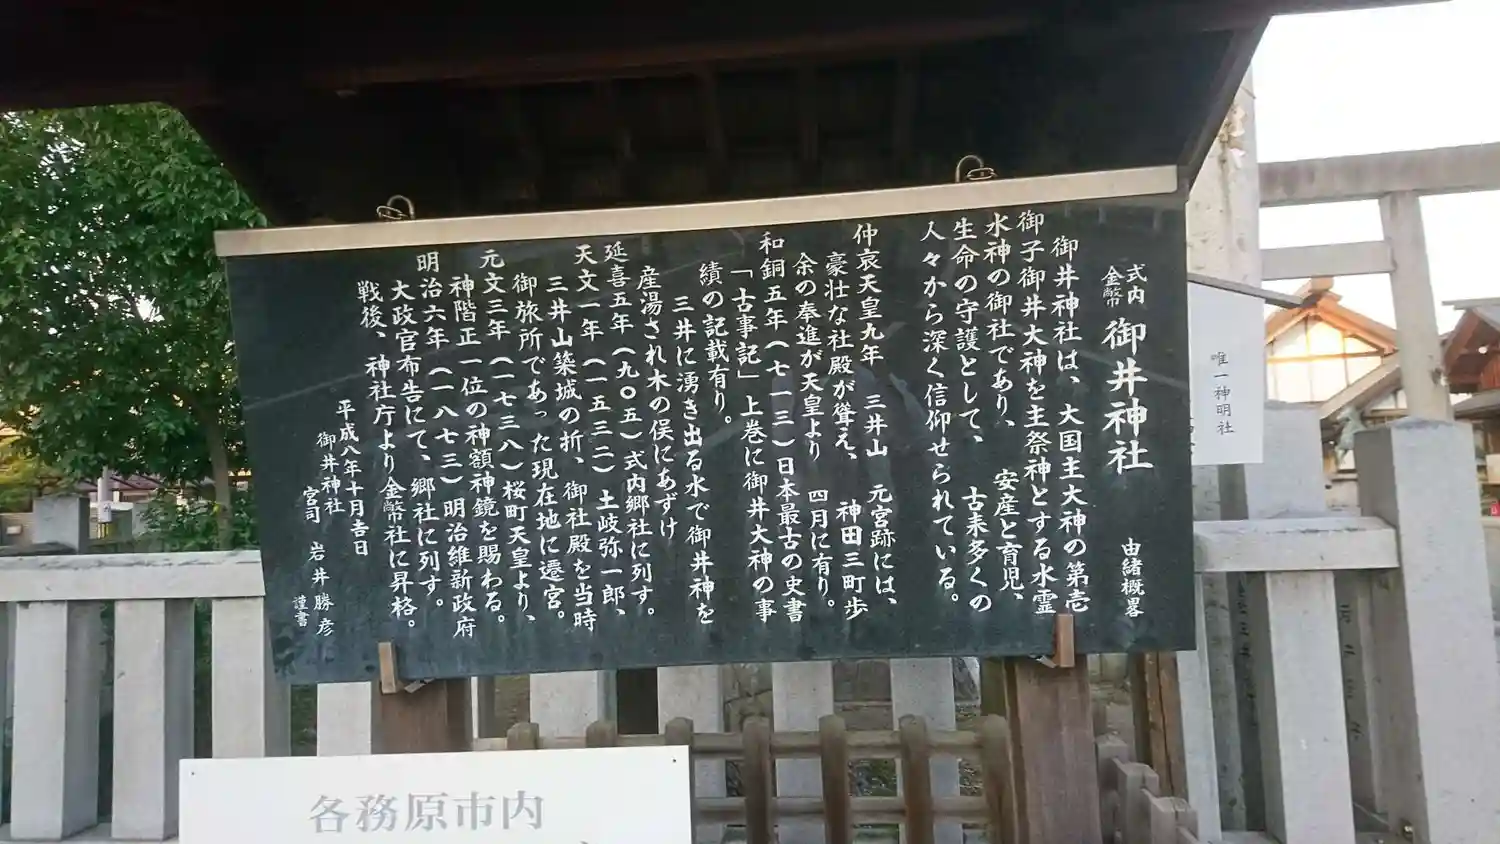 式内
金幣
御井神社
由緒概畧
御井神社は、大国主大神の第壱
御子御井大神を主祭神とする水霊
水神の御社であり、安産と育児、
生命の守護として、古来多くの
人々から深く信仰せられている。
仲哀天皇九年 三井山 元宮跡には、
豪壮な社殿が聳え、神田三町歩
余の奉進が天皇より四月に有り。
和銅五年(七一三)日本最古の史書
「古事記」上巻に御井大神の事
績の記載有り。
三井に湧き出る水で御井神を
産湯され木の俣にあずけ
延喜五年(九〇五)式内郷社に列す。
天文一年(一五三二)土岐弥一郎、
三井山築城の折、御社殿を当時
御旅所であった現在地に遷宮。
元文三年(一七三八)桜町天皇より、
神階正一位の神額神鏡を賜わる。
明治六年(一八七三)明治維新政府
大政官布告にて、郷社に列す。
戦後、神社庁より金幣社に昇格。
平成八年十月吉日
御井神社
宮司 岩井勝彦
謹書
唯一神明社
各務原市内